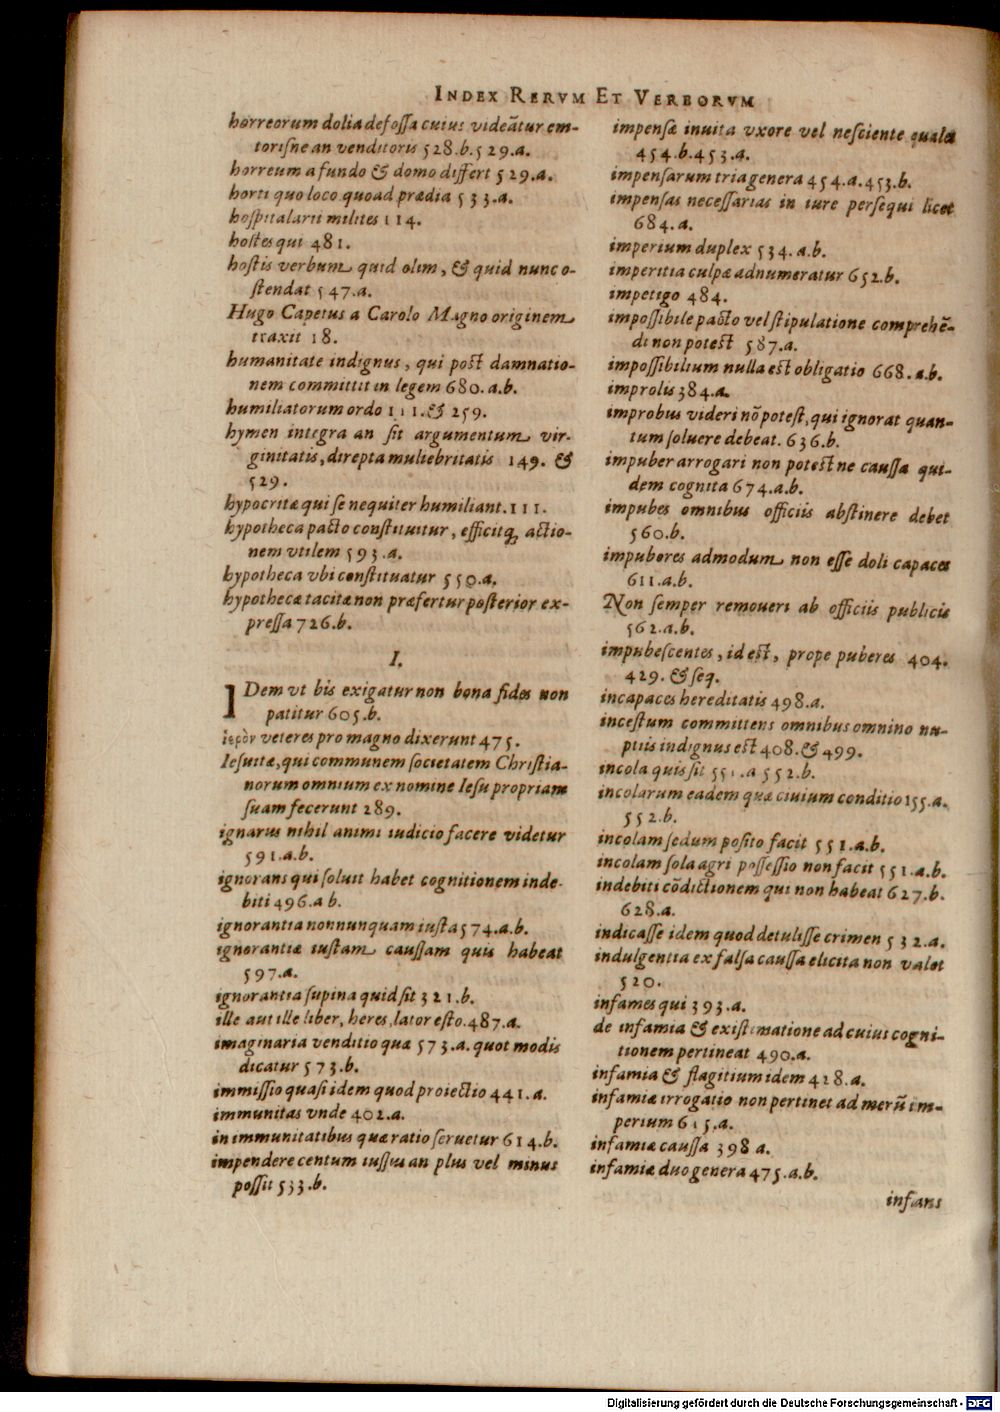 INDEX RERVM ET VERBORVM
horreorum dolia defossa cuius videātur em-
torisne an venditoris 528.b.529.a.
horreum a fundo & domo differt 529.a.
horti quo loco quoad prædia 533.a.
hospitalarii milites 114.
hostes qui 481.
hostis verbum quid olim, & quid nunc o-
stendat 547.a.
Hugo Capetus a Carolo Magno originem
traxit 18.
humanitate indignus, qui post damnatio-
nem committit in legem 680.a.b.
humiliatorum ordo 111.& 259.
hymen integra an sit argumentum vir-
ginitatis, direpta muliebritatis 149. &
529.
hypocritæ qui se nequiter humiliant. 111.
hypotheca pacto constituitur, efficitq́; actio-
nem vtilem 593.a.
hypotheca vbi constituatur 550.a.
hypothecæ tacitæ non præfertur posterior ex-
pressa 726.b.
I.
IDem vt bis exigatur non bona fides non
patitur 605.b.
ἱερὸν veteres pro magno dixerunt 475.
Iesuitæ, qui communem societatem Christia-
norum omnium ex nomine Iesu propriam
suam fecerunt 289.
ignarus nihil animi iudicio facere videtur
591.a.b.
ignorans qui soluit habet cognitionem inde-
biti 496.a b.
ignorantia nonnunquam iusta 574.a.b.
ignorantiæ iustam caussam quis habeat
597.a.
ignorantia supina quid sit 321.b.
ille aut ille liber, heres, lator esto. 487.a.
imaginaria venditio quæ 573.a. quot modis
dicatur 573.b.
immissio quasi idem quod proiectio 441.a.
immunitas vnde 402.a.
in immunitatibus quæ ratio seruetur 614.b.
impendere centum iussus an plus vel minus
possit 533.b.
impensæ inuita vxore vel nesciente quales
454.b.453.a.
impensarum tria genera 454.a.453.b.
impensas necessarias in iure persequi licet
684.a.
imperium duplex 534.a.b.
imperitia culpæ adnumeratur 652.b.
impetigo 484.
impossibile pacto vel stipulatione comprehē-
di non potest 587.a.
impossibilium nulla est obligatio 668.a.b.
improlis 384.a.
improbus videri nō potest, qui ignorat quan-
tum soluere debeat. 636.b.
impuber arrogari non potest ne caussa qui-
dem cognita 674.a.b.
impubes omnibus officiis abstinere debet
560.b.
impuberes admodum non esse doli capaces
611.a.b.
Non semper remoueri ab officiis publicis
562.a.b.
impubescentes, id est, prope puberes 404.
429. & seq.
incapaces hereditatis 498.a.
incestum committens omnibus omnino nu-
ptiis indignus est 408.& 499.
incola quis sit 551.a 552.b.
incolarum eadem quæ ciuium conditio 155.a.
552.b.
incolam sedum posito facit 551.a.b.
incolam sola agri possessio non facit 551.a.b.
indebiti cōdictionem qui non habeat 627.b.
628.a.
indicasse idem quod detulisse crimen 532.a.
indulgentia ex falsa caussa elicita non valet
520.
infames qui 393.a.
de infamia & existimatione ad cuius cogni-
tionem pertineat 490.a.
infamia & flagitium idem 428.a.
infamiæ irrogatio non pertinet ad merū im-
perium 615.a.
infamiæ caussa 398 a.
infamiæ duo genera 475.a.b.
infans
Digitalisierung gefördert durch die Deutsche Forschungsgemeinschaft - DFG